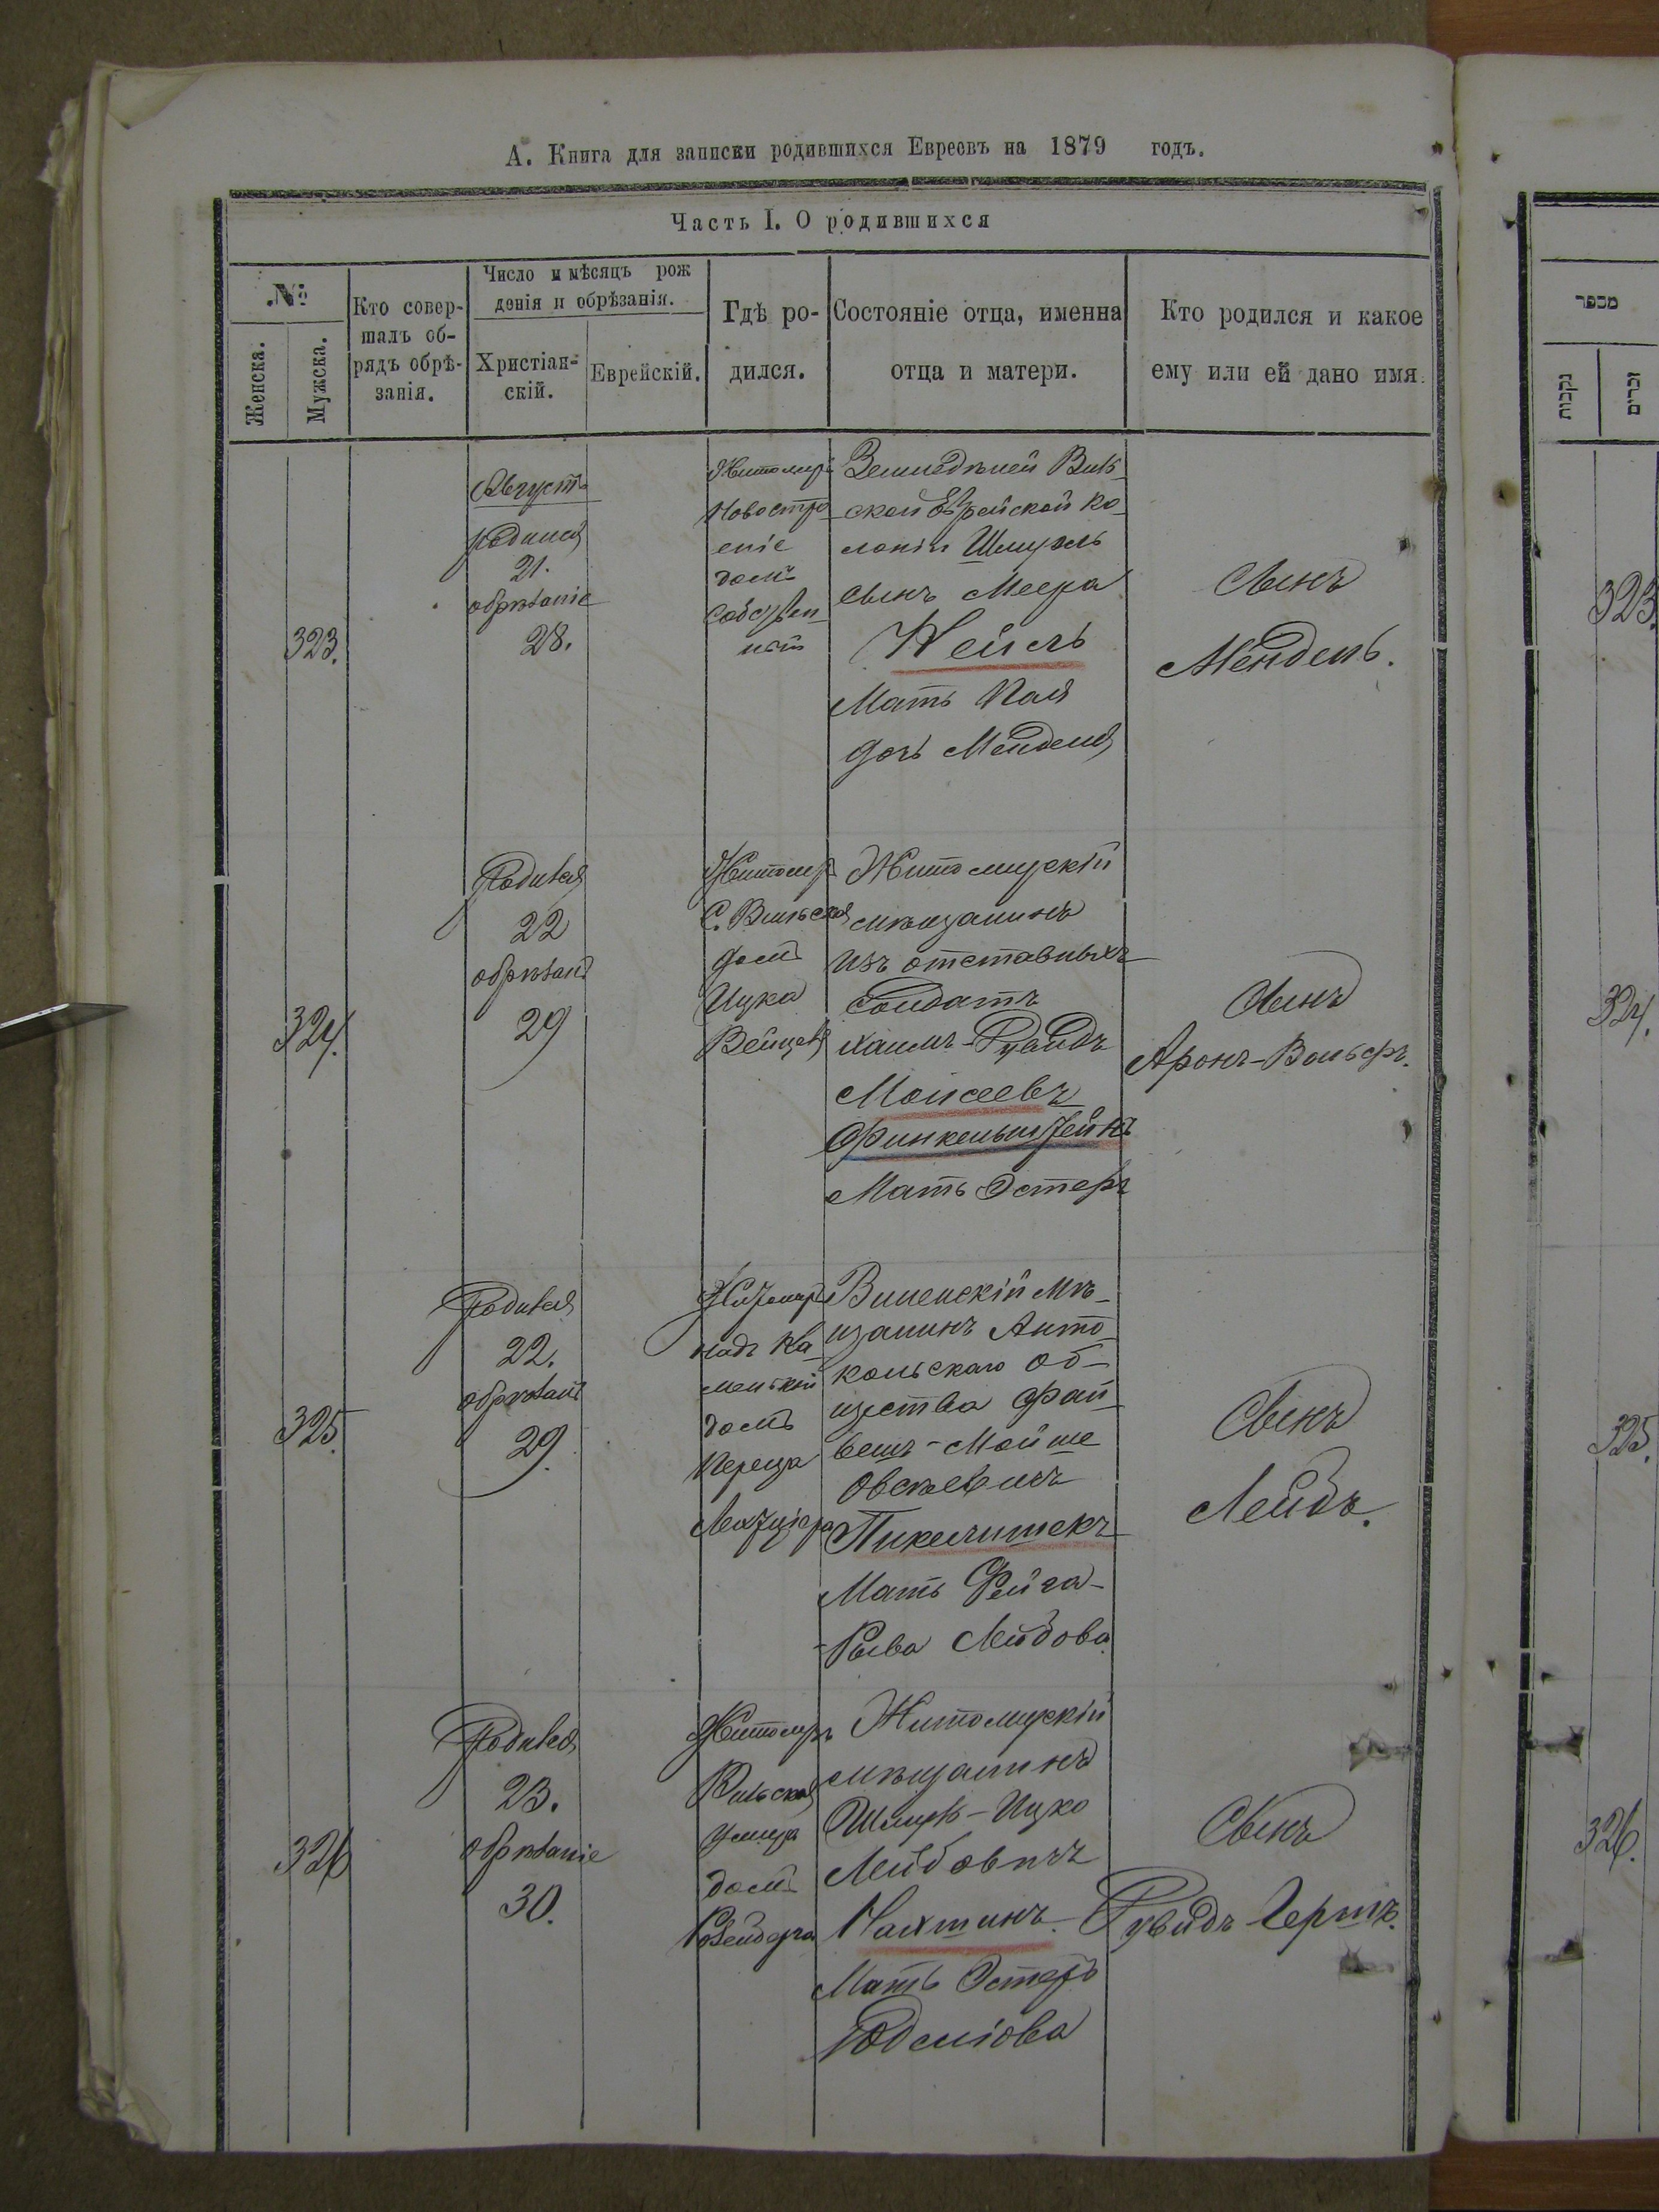 А. Книга для записки родившихся Евреовъ на 1879 годъ.
Часть I. О родившихся
№
Женска.
Мужска.
Кто совер-
шалъ об-
рядъ обрѣ-
занія.
Число и мѣсяцъ рож
денія и обрѣзанія.
Христіан-
скій.
Еврейскій.
Гдѣ ро-
дился.
Состояніе отца, именна
отца и матери.
Кто родился и какое
ему или ей дано имя.
323.
Августъ
родился
21.
обрѣзаніе
28.
Житомиръ
Новостро
еніе
домъ
собствен
Земледѣлей Виль
ской Еврейской ко
лоніи Шмуэль
сынъ Меера
Нейсъ
Мать Хая
дочь Менделя
Сынъ
Мендель.
324.
Родився
22
обрѣзаніе
29
Житомир
С. Вильская
домъ
Ицка
Житомирскій
мѣщанинъ
изъ отставныхъ
солдатъ
Хаимъ-Рувидъ
Моисеевъ
Финкельштейнъ
Мать Эстеръ
Сынъ
Аронъ-Вольфъ.
325.
Родився
22.
обрѣзаніе
29.
Житомиръ
надъ Ка
менькой
домъ
Переца
Виленскій мѣ-
щанинъ Анто
кольскаго об-
щества Фай
вешъ-Мойше
Овсѣевичъ
Мать Фейга-
-Рыва Лейбова
Сынъ
Лейбъ.
326
Родився
23.
обрѣзаніе
30.
Житомиръ
Вильская
улица
домъ
Житомирскій
мѣщанинъ
Шлиовъ-Ицко
Лейбовичъ
Нахтинъ
Мать Эстеръ
Сынъ
Рувидъ Гершъ.
מספר
נקבות
זכרים
323.
324.
325.
326.